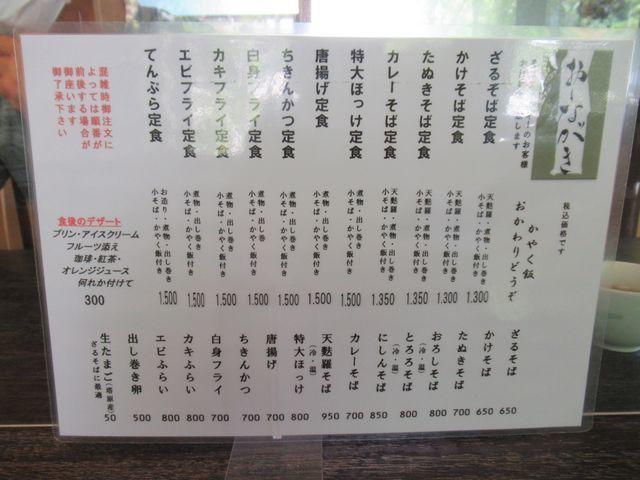 おしながき
税込価格です
かやく飯
おかわりどうぞ
ざるそば定食
天麩羅・煮物・出し巻き
小そば・かやく飯付き
1.300
かけそば定食
天麩羅・煮物・出し巻き
小そば・かやく飯付き
1.300
たぬきそば定食
天麩羅・煮物・出し巻き
小そば・かやく飯付き
1.350
カレーそば定食
天麩羅・煮物・出し巻き
小そば・かやく飯付き
1.350
特大ほっけ定食
煮物・出し巻き
小そば・かやく飯付き
1.500
唐揚げ定食
煮物・出し巻き
小そば・かやく飯付き
1.500
ちきんかつ定食
煮物・出し巻き
小そば・かやく飯付き
1.500
白身フライ定食
煮物・出し巻き
小そば・かやく飯付き
1.500
カキフライ定食
煮物・出し巻き
小そば・かやく飯付き
1.500
エビフライ定食
煮物・出し巻き
小そば・かやく飯付き
1.500
てんぷら定食
お造り・煮物・出し巻き
小そば・かやく飯付き
1.500
混雑時御注文に
よっては順番が
前後する場合が
御座います
御了承下さい
食後のデザート
プリン・アイスクリーム
フルーツ添え
珈琲・紅茶・
オレンジジュース
何れか付けて
300
ざるそば
650
かけそば
650
たぬきそば
700
おろしそば
(冷・温)
800
とろろそば
(冷・温)
800
にしんそば
850
カレーそば
700
天麩羅そば
(冷・温)
950
特大ほっけ
800
唐揚げ
700
ちきんかつ
700
白身フライ
700
カキふらい
800
エビふらい
800
出し巻き卵
500
生たまご(塔原産)
ざるそばに最適
50